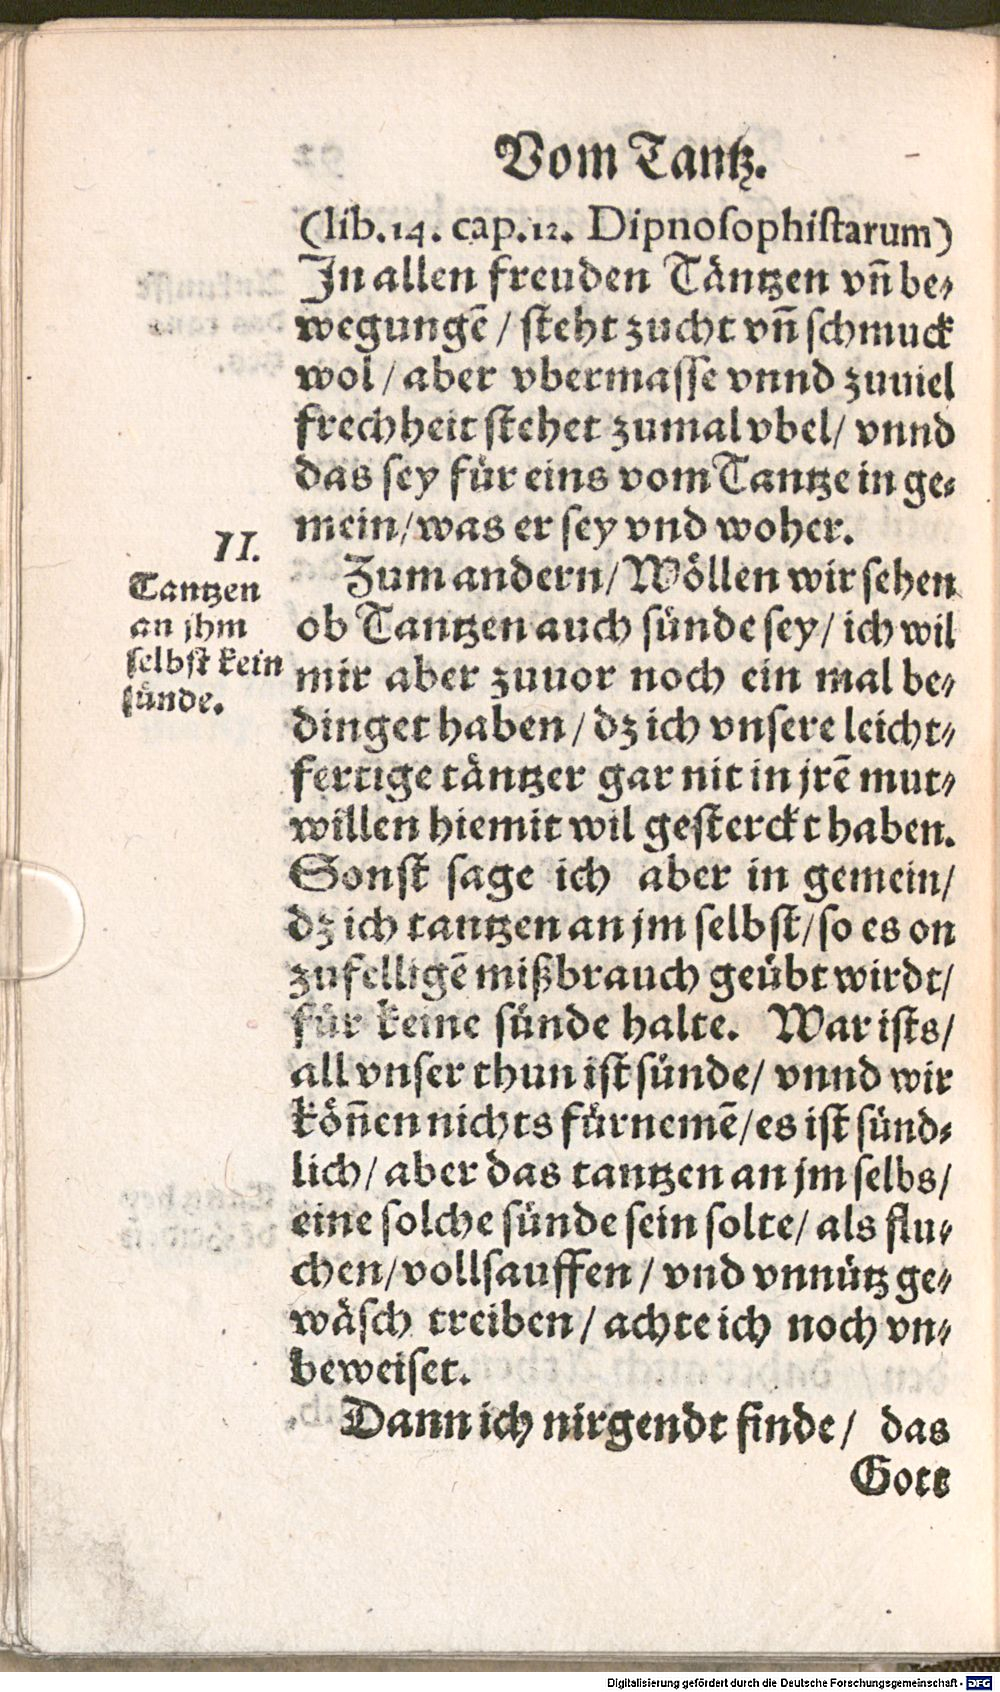 Vom Tantz.
(lib.14. cap.12. Dipnosophistarum)
In allen freuden Täntzen vn̄ be⸗
wegungē / steht zucht vn̄ schmuck
wol / aber vbermasse vnnd zuuiel
frechheit stehet zumal vbel / vnnd
das sey für eins vom Tantze in ge⸗
mein / was er sey vnd woher.
II.
Tantzen
an jhm
selbst kein
sünde.
Zum andern / Wöllen wir sehen
ob Tantzen auch sünde sey / ich wil
mir aber zuuor noch ein mal be⸗
dinget haben / dz ich vnsere leicht⸗
fertige täntzer gar nit in jrē mut⸗
willen hiemit wil gesterckt haben.
Sonst sage ich aber in gemein /
dz ich tantzen an jm selbst / so es on
zufelligē mißbrauch geübt wirdt /
für keine sünde halte. War ists /
all vnser thun ist sünde / vnnd wir
kön̄en nichts fürnemē / es ist sünd⸗
lich / aber das tantzen an jm selbs /
eine solche sünde sein solte / als flu⸗
chen / vollsauffen / vnd vnnütz ge⸗
wäsch treiben / achte ich noch vn⸗
beweiset.
Dann ich nirgendt finde / das
Gott
Digitalisierung gefördert durch die Deutsche Forschungsgemeinschaft - DFG